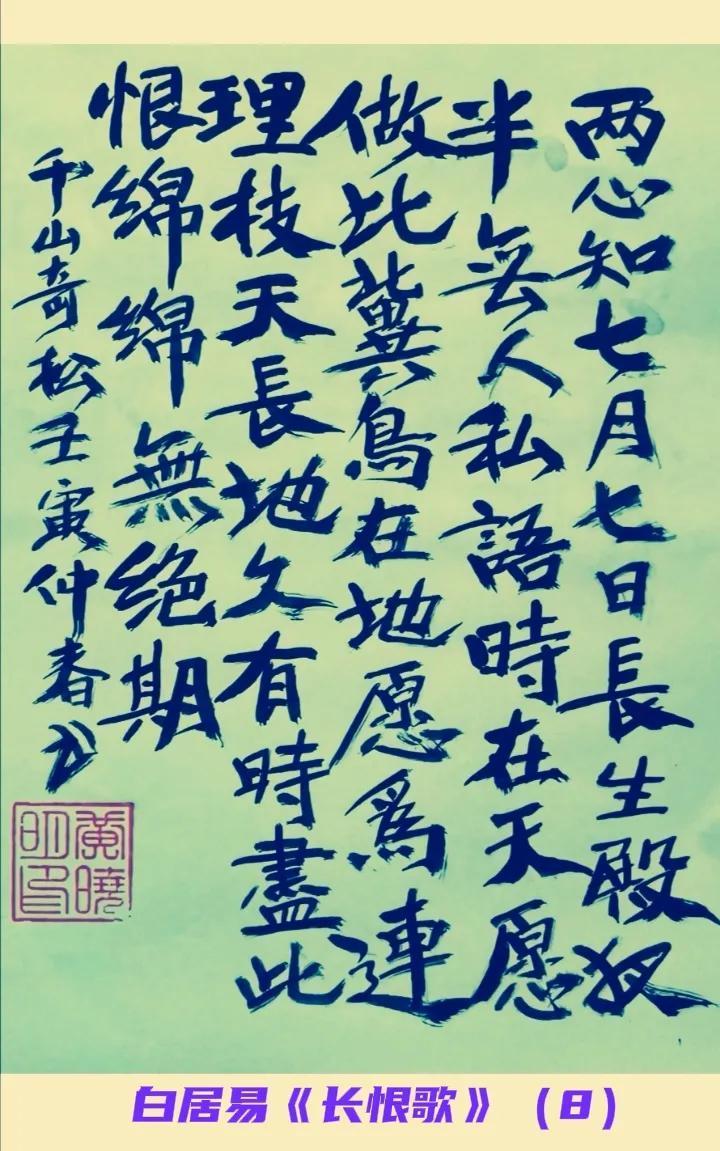 两心知七月七日長生殿夜
半無人私語時在天愿
做比冀鳥在地愿為連
理枝天長地久有時盡此
恨綿綿無绝期
千山奇松壬寅仲春
黄曉明印
白居易《长恨歌》（8）